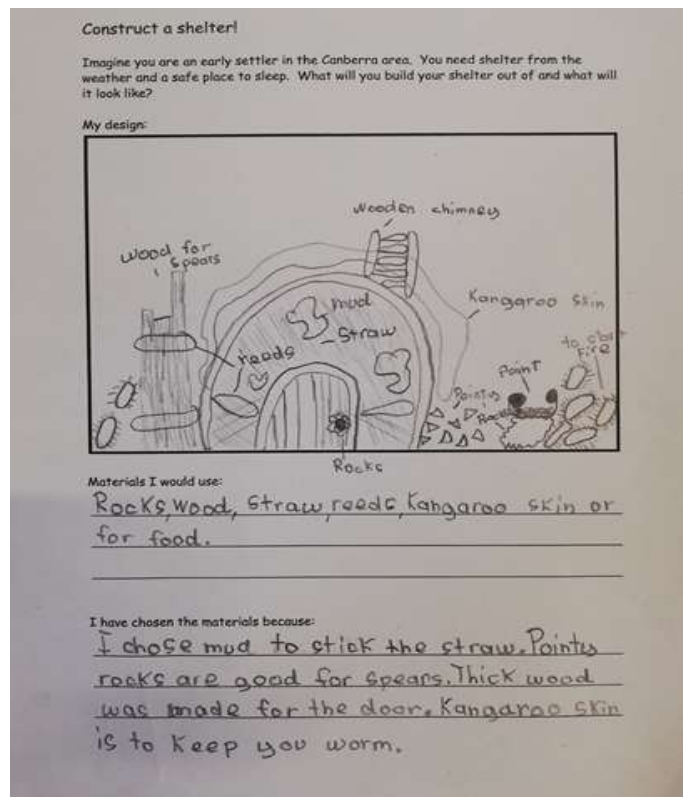 Construct a shelter!
Imagine you are an early settler in the Canberra area. You need shelter from the
weather and a safe place to sleep. What will you build your shelter out of and what will
it look like?
My design:
Wooden chimney
Wood for
spears
Kangaroo skin
mud
Straw
reeds
to start
fire
Paint
Pointy
Rocks
Rocks
Materials I would use:
Rocks, wood, straw, reeds, Kangaroo skin or
for food.
I have chosen the materials because:
I chose mud to stick the straw. Pointy
rocks are good for spears. Thick wood
was made for the door. Kangaroo skin
is to keep you worm.